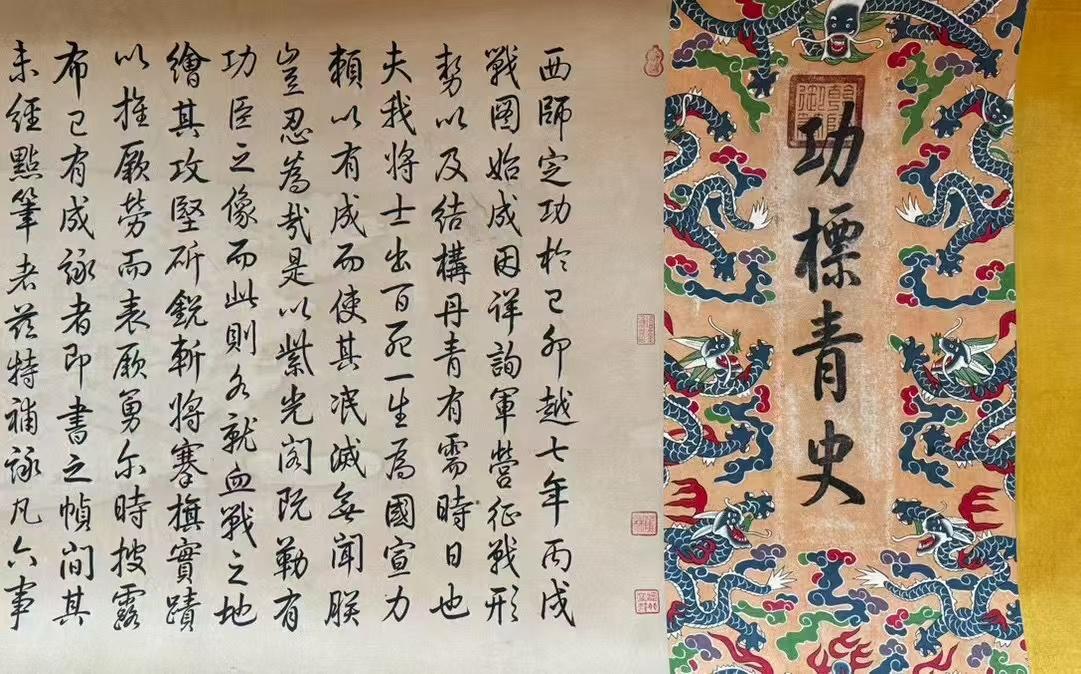 功標青史
西師定功於己卯越七年丙戌
戰圖始成因詳詢軍營征戰形
勢以及結構丹青有需時日也
夫我将士出百死一生為國宣力
賴以有成而使其泯滅無聞朕
豈忍為哉是以紫光阁既勒有
功臣之像而此則各就血戰之地
繪其攻堅斫銳斬将搴旗實蹟
以推厥勞而表厥勇尔時披露
布已有成詠者即書之幀间其
未經點筆者兹特補詠凡六事